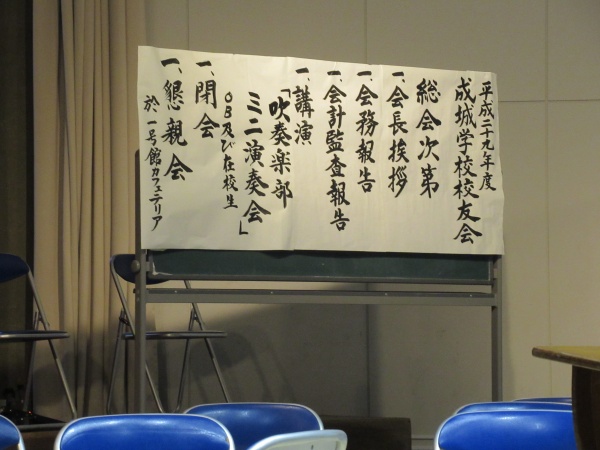 平成二十九年度
成城学校校友会
総会次第
一、会長挨拶
一、会務報告
一、会計監査報告
一、講演
「吹奏楽部
ミニ演奏会」
OB及び在校生
一、閉会
一、懇親会
於 一号館カフェテリア